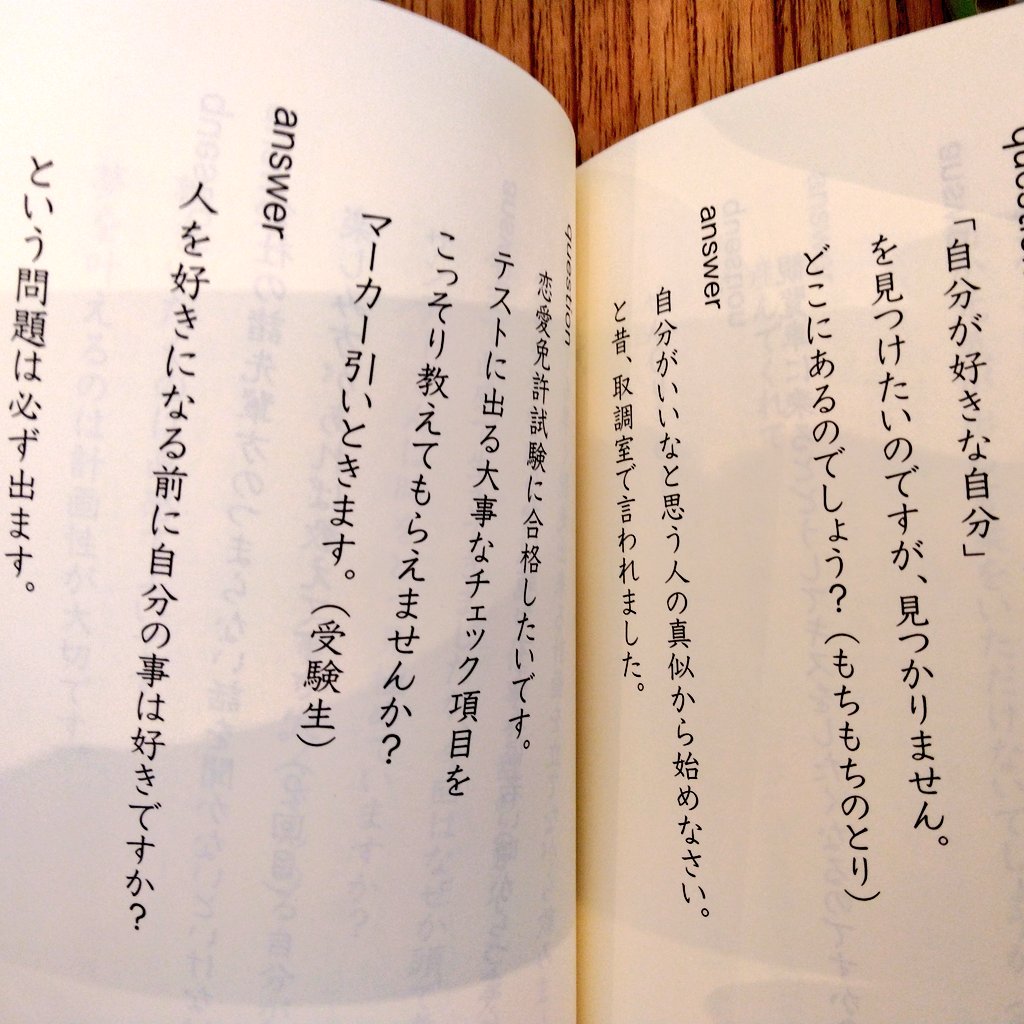 question
「自分が好きな自分」
を見つけたいのですが、見つかりません。
どこにあるのでしょう？（もちもちのとり）
answer
自分がいいなと思う人の真似から始めなさい。
と昔、取調室で言われました。
question
恋愛免許試験に合格したいです。
テストに出る大事なチェック項目を
こっそり教えてもらえませんか？
マーカー引いときます。（受験生）
answer
人を好きになる前に自分の事は好きですか？
という問題は必ず出ます。